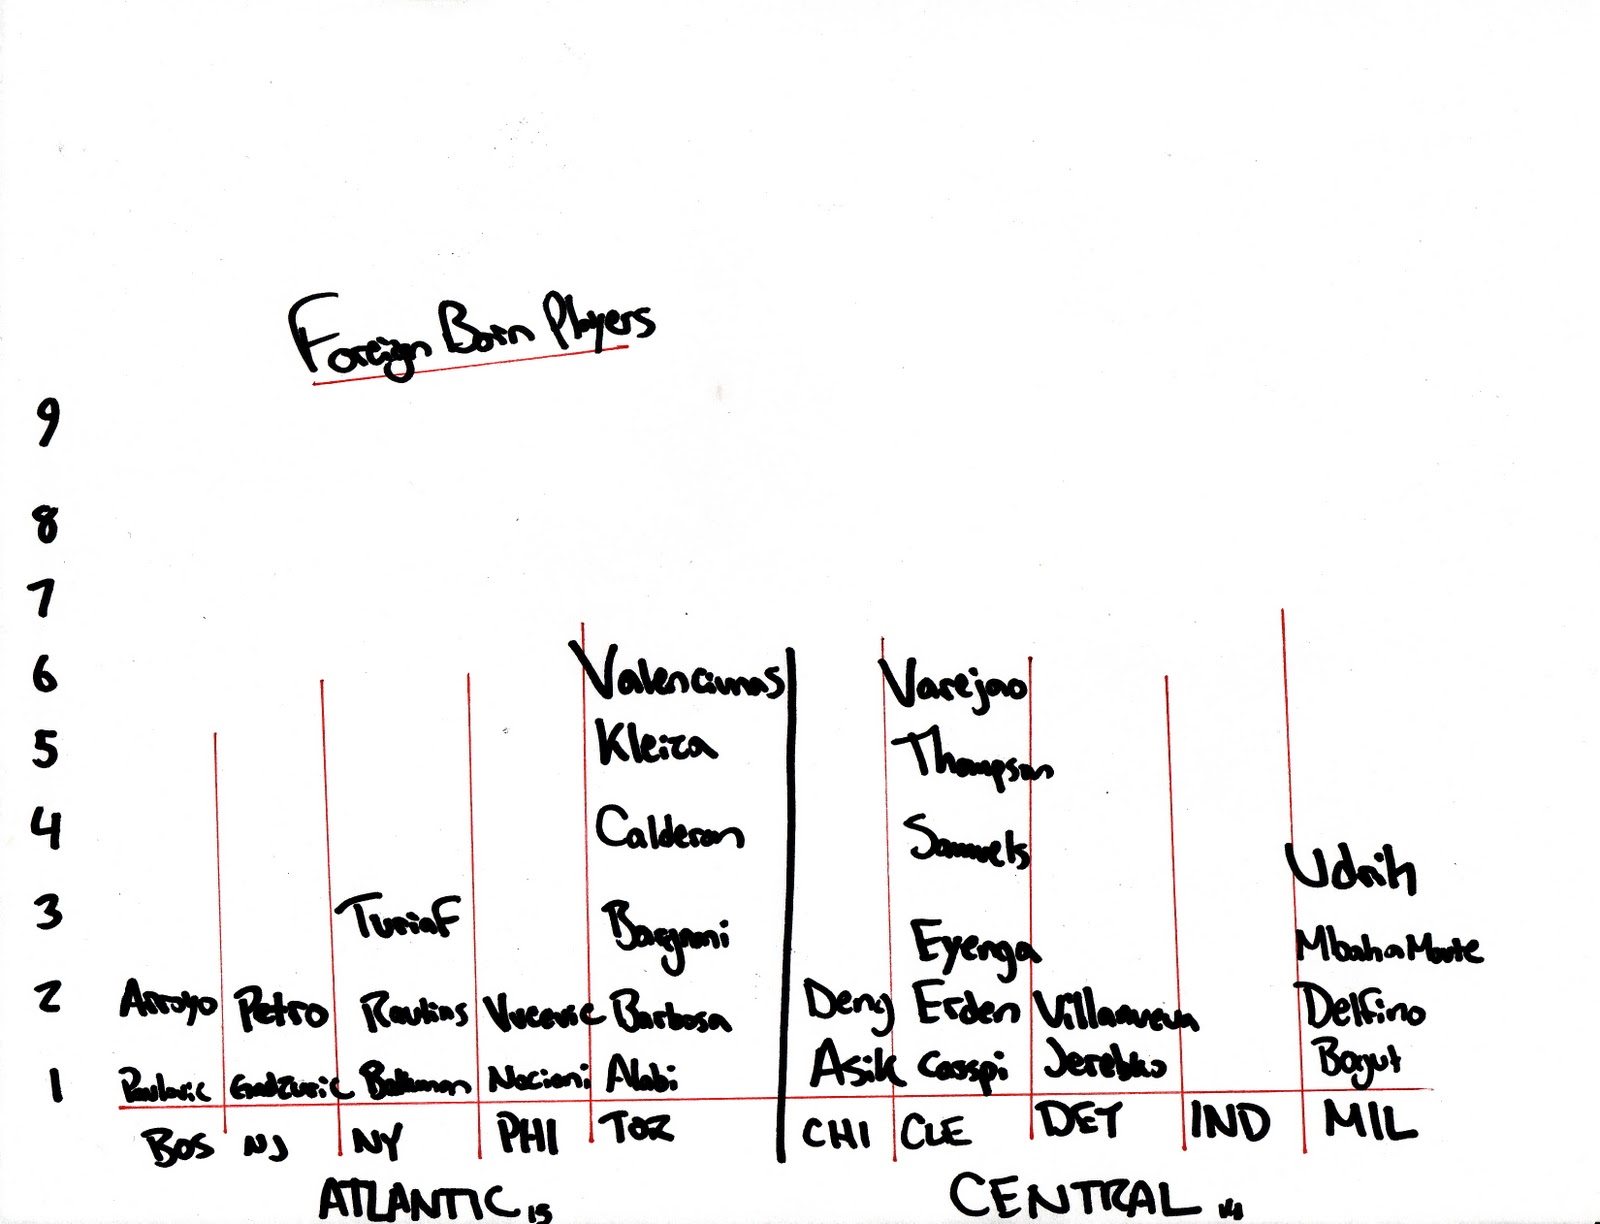 Foreign Born Players
9
8
7
6 Valenciunas Varejao
5 Kleiza Thompson
4 Calderon Samuels Udrih
3 Turiaf Bargnani Eyenga Mbah a Moute
2 Arroyo Petro Rautins Vucevic Barbosa Deng Erden Villanueva Delfino
1 Pavlovic Gadzuric Balkman Nocioni Alabi Asik Casspi Jerebko Bogut
BOS NJ NY PHI TOR CHI CLE DET IND MIL
ATLANTIC 15 CENTRAL 14